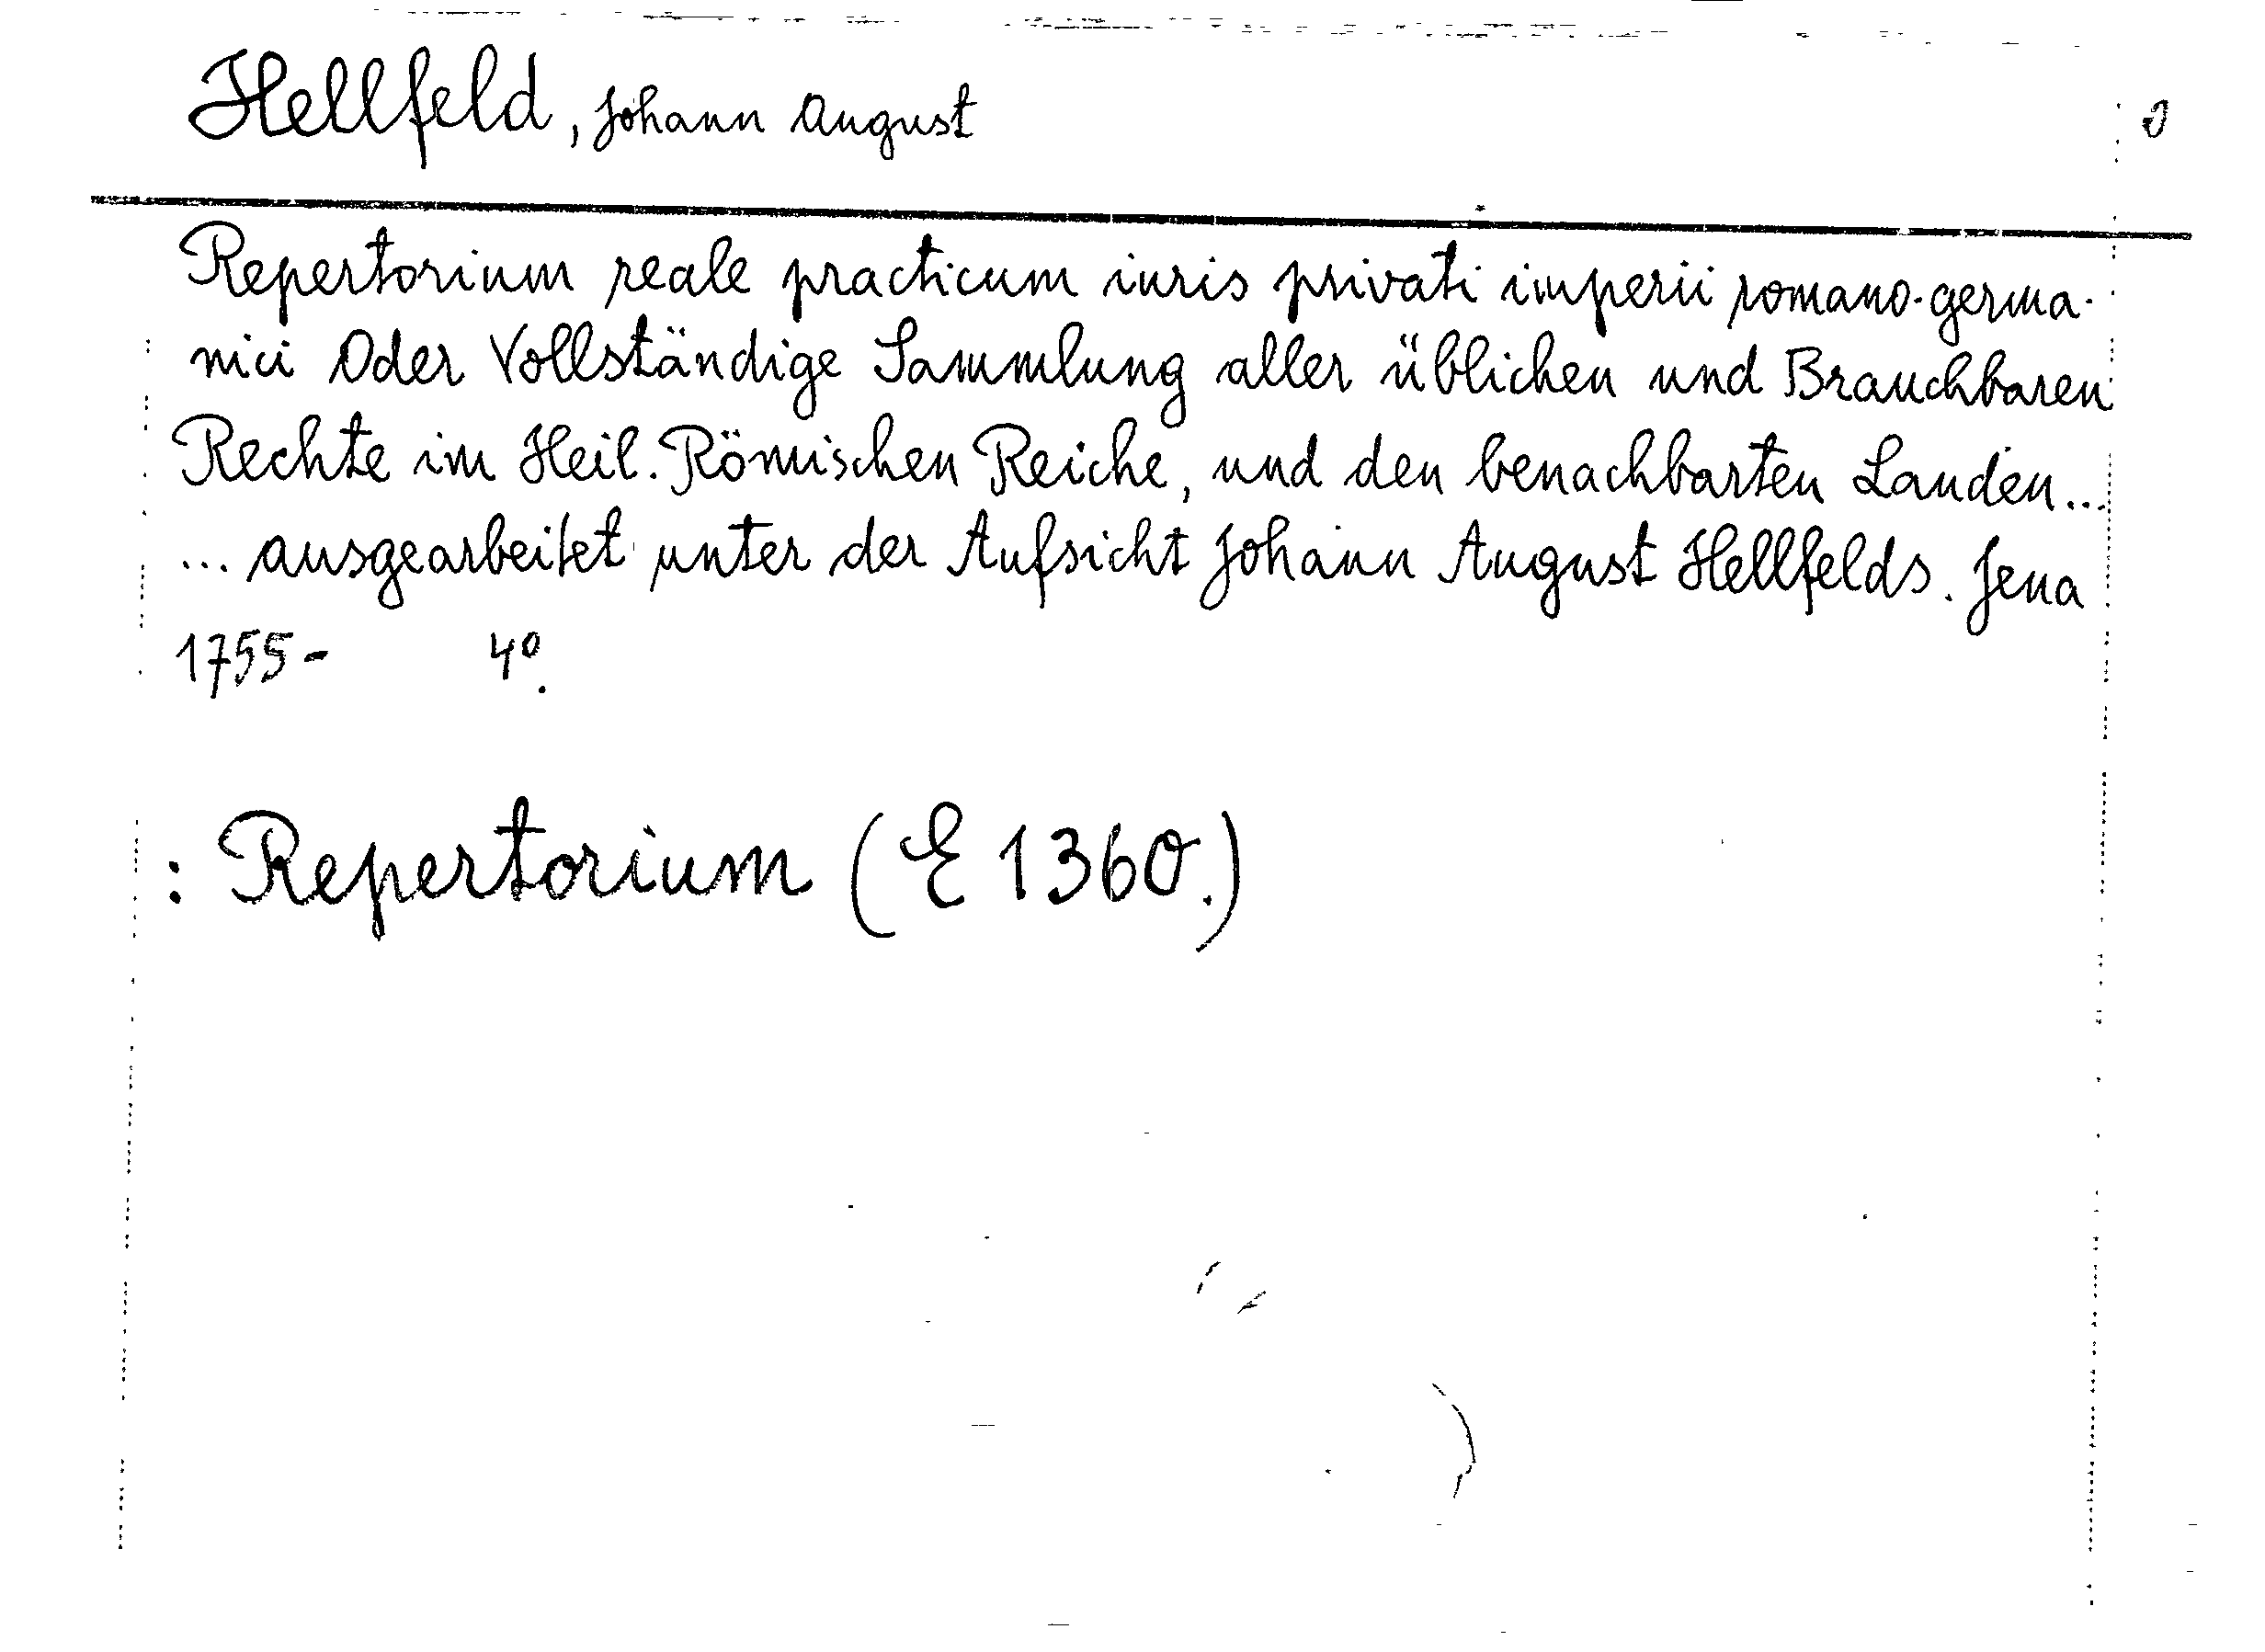 Hellfeld, Johann August
Repertorium reale practicum iuris privati imperii romano-germa-
nici Oder Vollständige Sammlung aller üblichen und Brauchbaren
Rechte im Heil. Römischen Reiche, und den benachbarten Landen...
... ausgearbeitet unter der Aufsicht Johann August Hellfelds. Jena
1755- 4º.
: Repertorium (E 1360.)